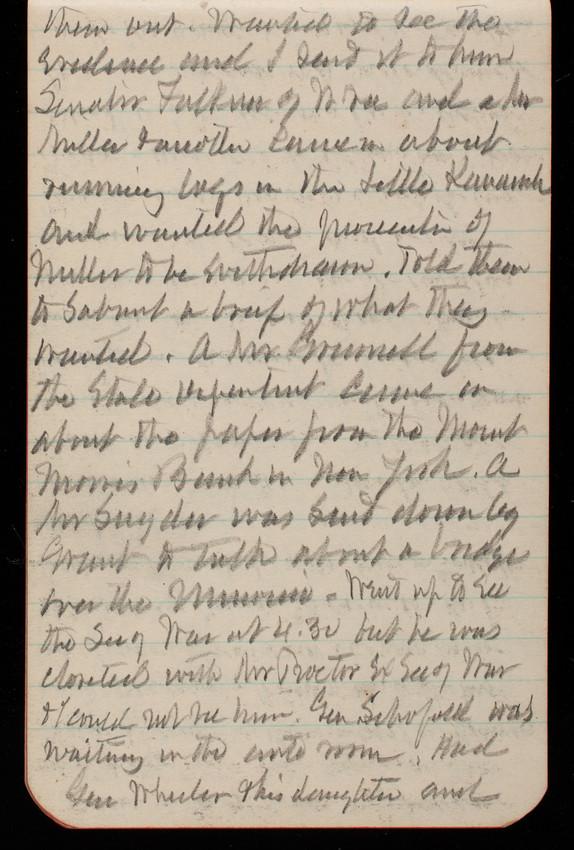 them out. Wanted to see the
Evidence and I send it to him
Senator Falkner of W Va and a Mr
Miller & another came in about
running logs in the Little Kanawh
and wanted the prosecution of
Miller to be withdrawn. Told them
to submit a brief of what they
wanted. A Mr Grinnell from
the State Department came in
about the paper from the Mount
Morris Bank in New York. A
Mr Snyder was send down by
Grant to talk about a bridge
over the Missouri - Went up to see
the Sec of War at 4.30 but he was
closeted with Mr Proctor Ex Sec of War
& I could not see him. Gen Schofield was
waiting in the ante room. Had
Gen Wheeler & his daughter and